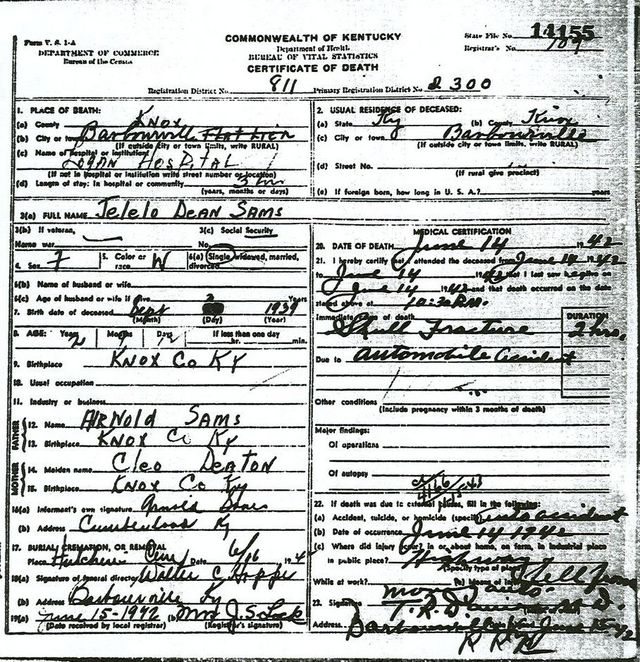 Form V. S. 1-A
DEPARTMENT OF COMMERCE
Bureau of the Census
COMMONWEALTH OF KENTUCKY
Department of Health
BUREAU OF VITAL STATISTICS
CERTIFICATE OF DEATH
State File No. 14155
Registrar's No.
Registration District No. 811 Primary Registration District No. 2300
1. PLACE OF DEATH:
(a) County Knox
(b) City or town Barbourville Flat Lick
(If outside city or town limits, write RURAL)
(c) Name of hospital or institution:
Logan Hospital
(If not in hospital or institution write street number or location)
(d) Length of stay: In hospital or community
(years, months or days)
2. USUAL RESIDENCE OF DECEASED:
(a) State Ky (b) County Knox
(c) City or town Barbourville
(If outside city or town limits, write RURAL)
(d) Street No.
(If rural give precinct)
(e) If foreign born, how long in U. S. A.? years
3(a) FULL NAME Jelelo Dean Sams
3(b) If veteran, 3(c) Social Security
Name war No.
4. Sex F 5. Color or race W 6(a) Single, widowed, married, divorced
6(b) Name of husband or wife
6(c) Age of husband or wife if alive Years
7. Birth date of deceased Sept 2 1939
(Month) (Day) (Year)
8. AGE: Years 2 Months 9 Days 12 If less than one day
hr. min.
9. Birthplace Knox Co Ky
10. Usual occupation
11. Industry or business
FATHER
12. Name Airnold Sams
13. Birthplace Knox Co Ky
MOTHER
14. Maiden name Cleo Deaton
15. Birthplace Knox Co Ky
16(a) Informant's own signature Arnold Sams
(b) Address Cumberland Ky
17. BURIAL, CREMATION, OR REMOVAL
Place Date 6/16 194
18(a) Signature of funeral director Walter C Hopper
(b) Address Barbourville Ky
19(a) June 15-1942 (b) Mrs J. S. Lock
(Date received by local registrar) (Registrar's signature)
MEDICAL CERTIFICATION
20. DATE OF DEATH June 14 1942
21. I hereby certify that I attended the deceased from June 14 1942
to June 14 1942 that I last saw h alive on
June 14 1942 and that death occurred on the date
stated above at 10:30 P.M.
Immediate cause of death DURATION
Skull Fracture 2 hrs.
Due to automobile accident
Other conditions
(Include pregnancy within 3 months of death)
Major findings:
Of operations
Of autopsy
22. If death was due to external causes, fill in the following:
(a) Accident, suicide, or homicide (specify) Auto accident
(b) Date of occurrence June 14 1942
(c) Where did injury occur? in or about home, on farm, in industrial place
in public place? Highway
(Specify type of place)
While at work? (e) Means of injury Fell from
moving auto.
23. Signature M. D.
Address Barbourville